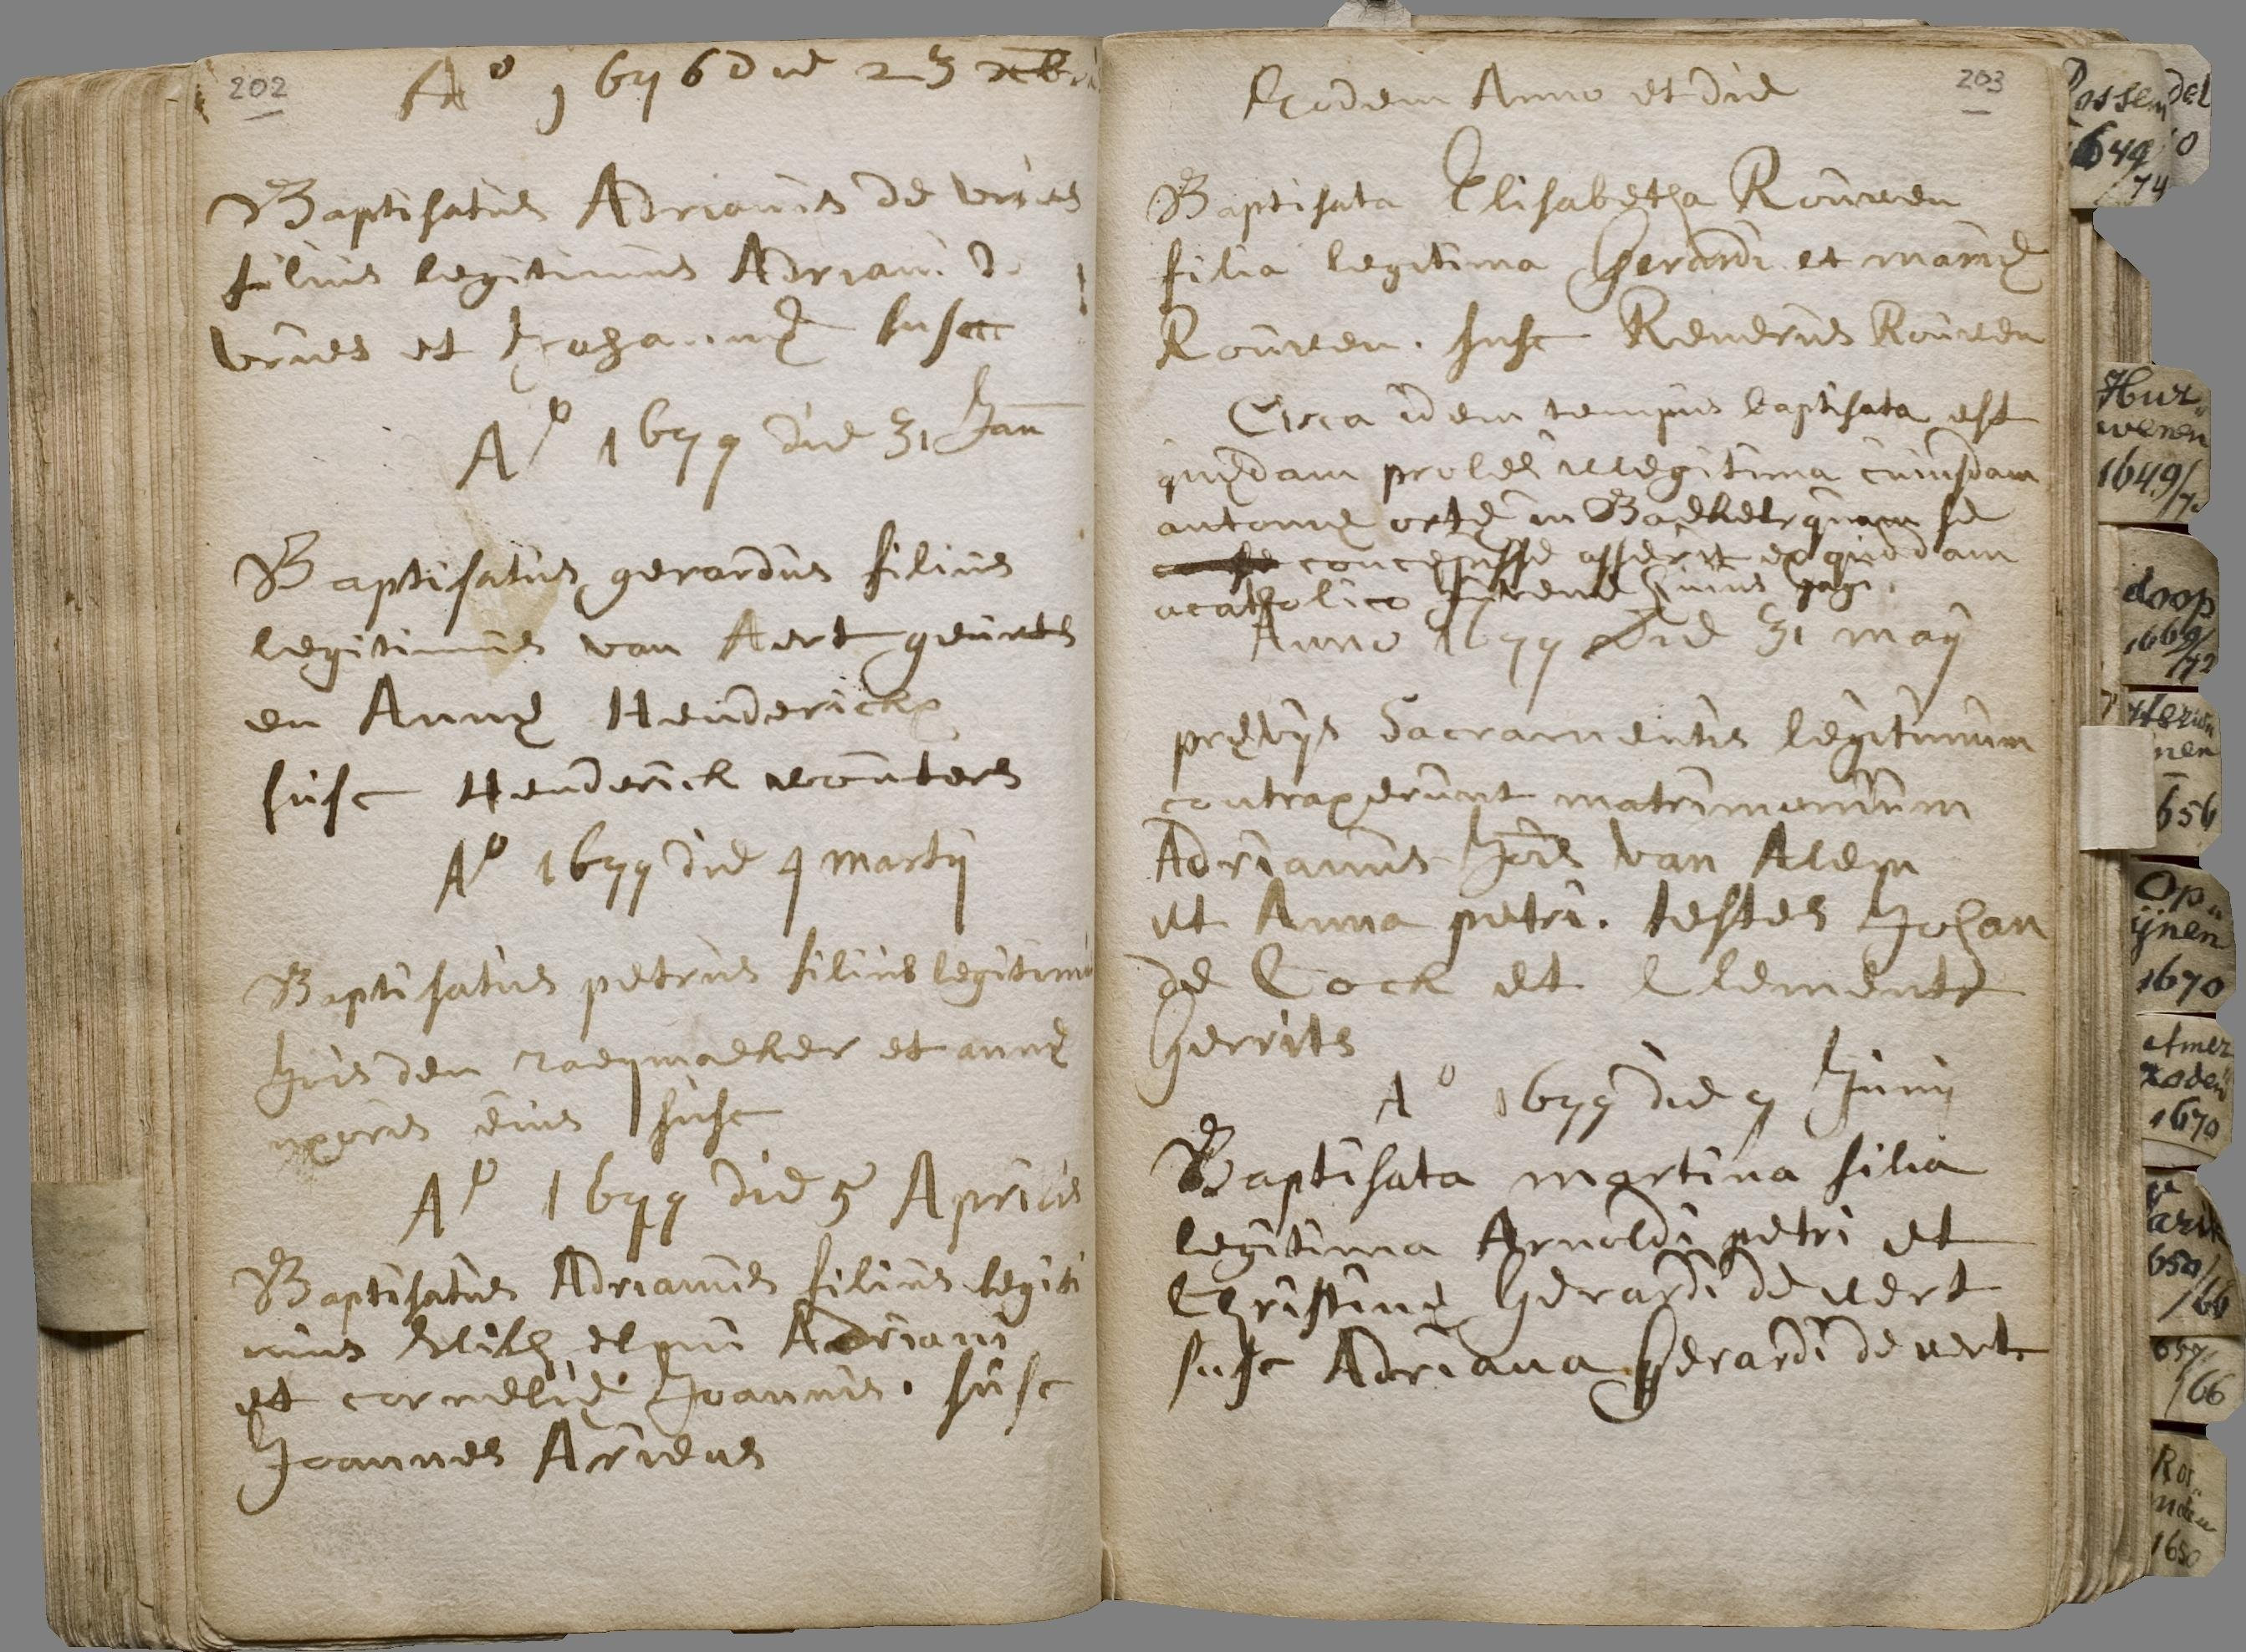 202
Aº 1676 die 23 xbris
Baptisatus Adrianus de vries
filius legitimus Adriani de
vries et Johannę susc
Aº 1677 die 31 Jan
Baptisatus gerardus filius
legitimus van Aert geurts
en Annę Henderickx
susc Henderick wouters
Aº 1677 die 4 martij
Baptisatus petrus filius legitimus
Joris den raeymaeker et annę
uxoris eius susc
Aº 1677 die 5 Aprilis
Baptisatus Adrianus filius legiti
mus Adriani
et cornelię Joannis. susc
Joannes Ariens
203
Eodem Anno et die
Baptisata Elisabetha Rouwen
filia legitima Gerardi et marię
Rouwen. susc Renerus Rouwen
Circa idem tempus baptisata est
quędam proles illegitima cuiusdam
antonię ortę in Baekel quam se
concepisse asserit ex quodam
acatholico iuvene huius pagi.
Anno 1677 Die 31 maij
pręvijs Sacramentis legitimum
contraxerunt matrimonium
Adrianus Joris van Alem
et Anna petri. testes Johan
de Cock et Clemente
Gerrits
Aº 1677 die 7 Junij
Baptisata martina filia
legitima Arnoldi petri et
Christinę Gerardi de weert
susc Adriana Gerardi de weert
Rossem
1649
/74
del
0
Hur„
wenen
1649/7
doop
1669/
/72
nen
656
Op„
ijnen
1670
Amer
zoden
1670
650/
/66
659/
/66
Ros„
1650